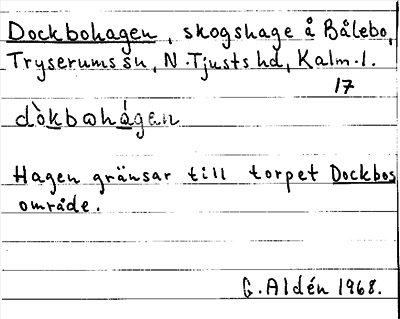 Dockbohagen, skogshage å Bålebo,
Tryserums sn, N. Tjusts hd, Kalm. l.
17
dòkbωhágen
Hagen gränsar till torpet Dockbos
område.
G. Aldén 1968.